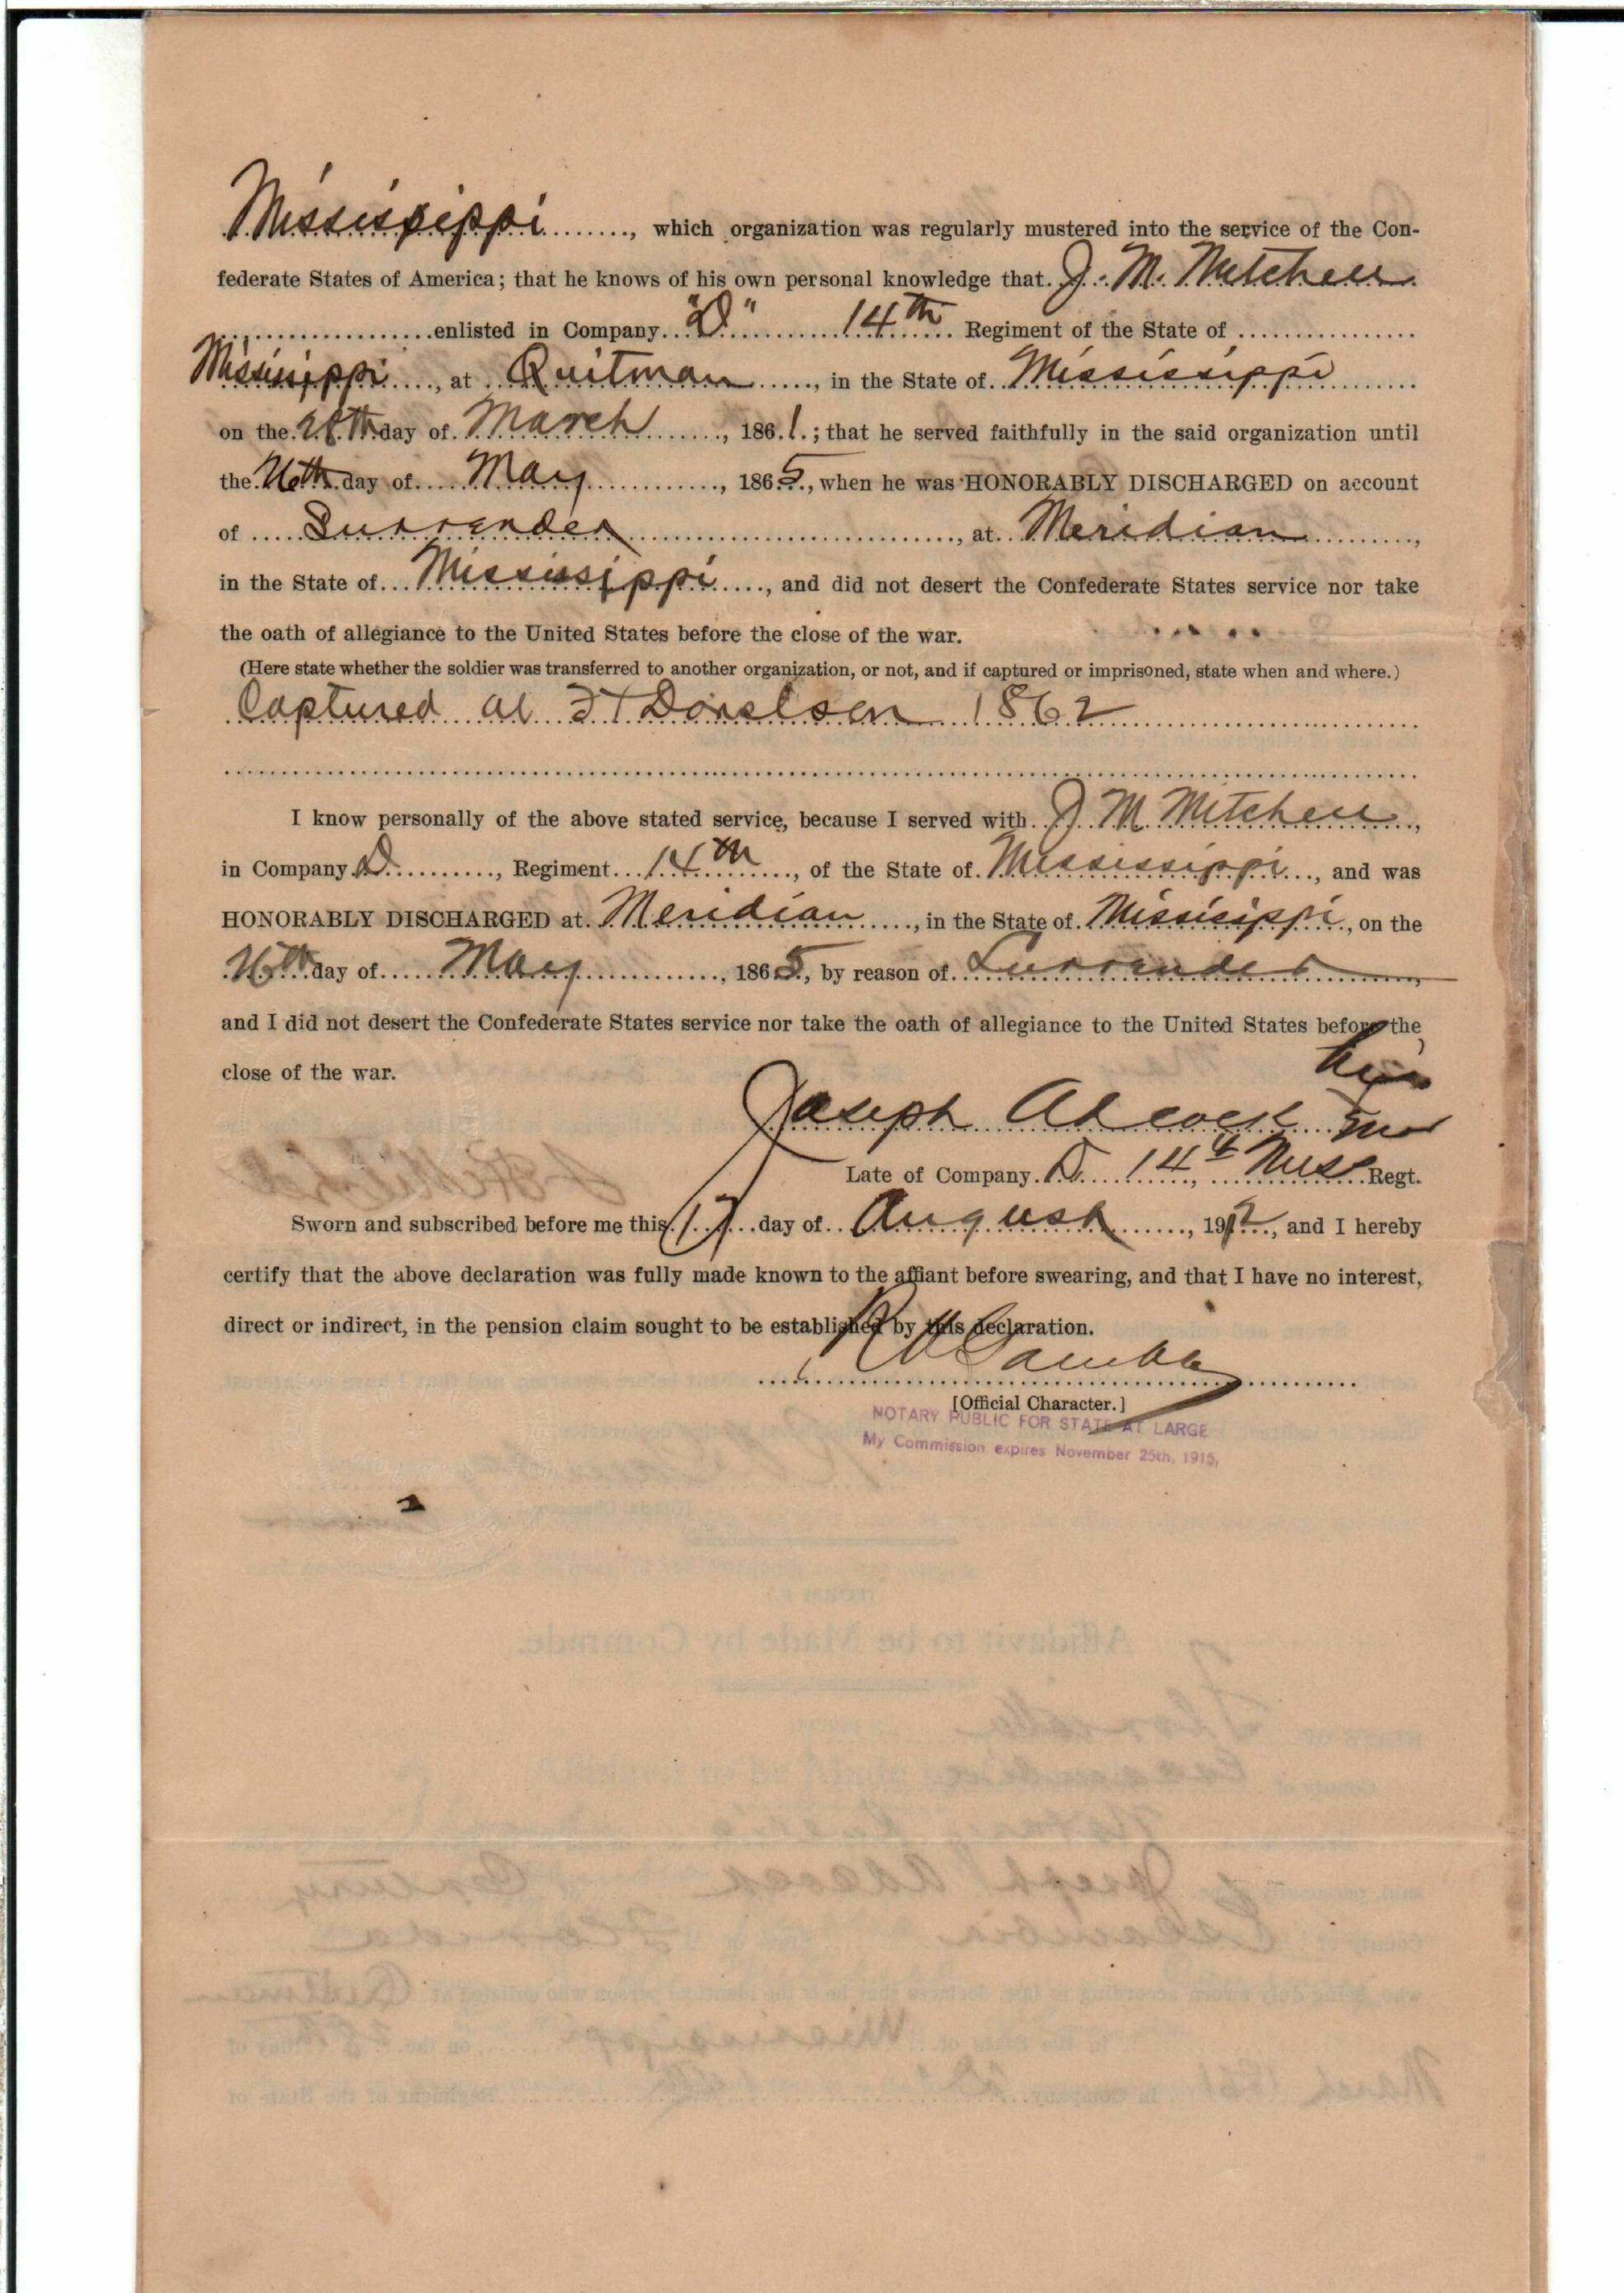 Mississippi, which organization was regularly mustered into the service of the Con-
federate States of America; that he knows of his own personal knowledge that J. M. Mitchell
enlisted in Company "D" 14th Regiment of the State of
Mississippi, at Quitman, in the State of Mississippi
on the 28th day of March, 1861; that he served faithfully in the said organization until
the 26th day of May, 1865, when he was HONORABLY DISCHARGED on account
of Surrender, at Meridian,
in the State of Mississippi, and did not desert the Confederate States service nor take
the oath of allegiance to the United States before the close of the war.
(Here state whether the soldier was transferred to another organization, or not, and if captured or imprisoned, state when and where.)
Captured at Ft Donelson 1862
I know personally of the above stated service, because I served with J M Mitchell,
in Company D, Regiment 14th, of the State of Mississippi, and was
HONORABLY DISCHARGED at Meridian, in the State of Mississippi, on the
26th day of May, 1865, by reason of Surrender,
and I did not desert the Confederate States service nor take the oath of allegiance to the United States before the
close of the war.
his
Joseph Adcock
Late of Company D 14th Miss Regt.
Sworn and subscribed before me this 17 day of August, 1912, and I hereby
certify that the above declaration was fully made known to the affiant before swearing, and that I have no interest,
direct or indirect, in the pension claim sought to be established by this declaration.
[Official Character.]
NOTARY PUBLIC FOR STATE AT LARGE
My Commission expires November 25th, 1915.
Affidavit to be Made by Comrade.